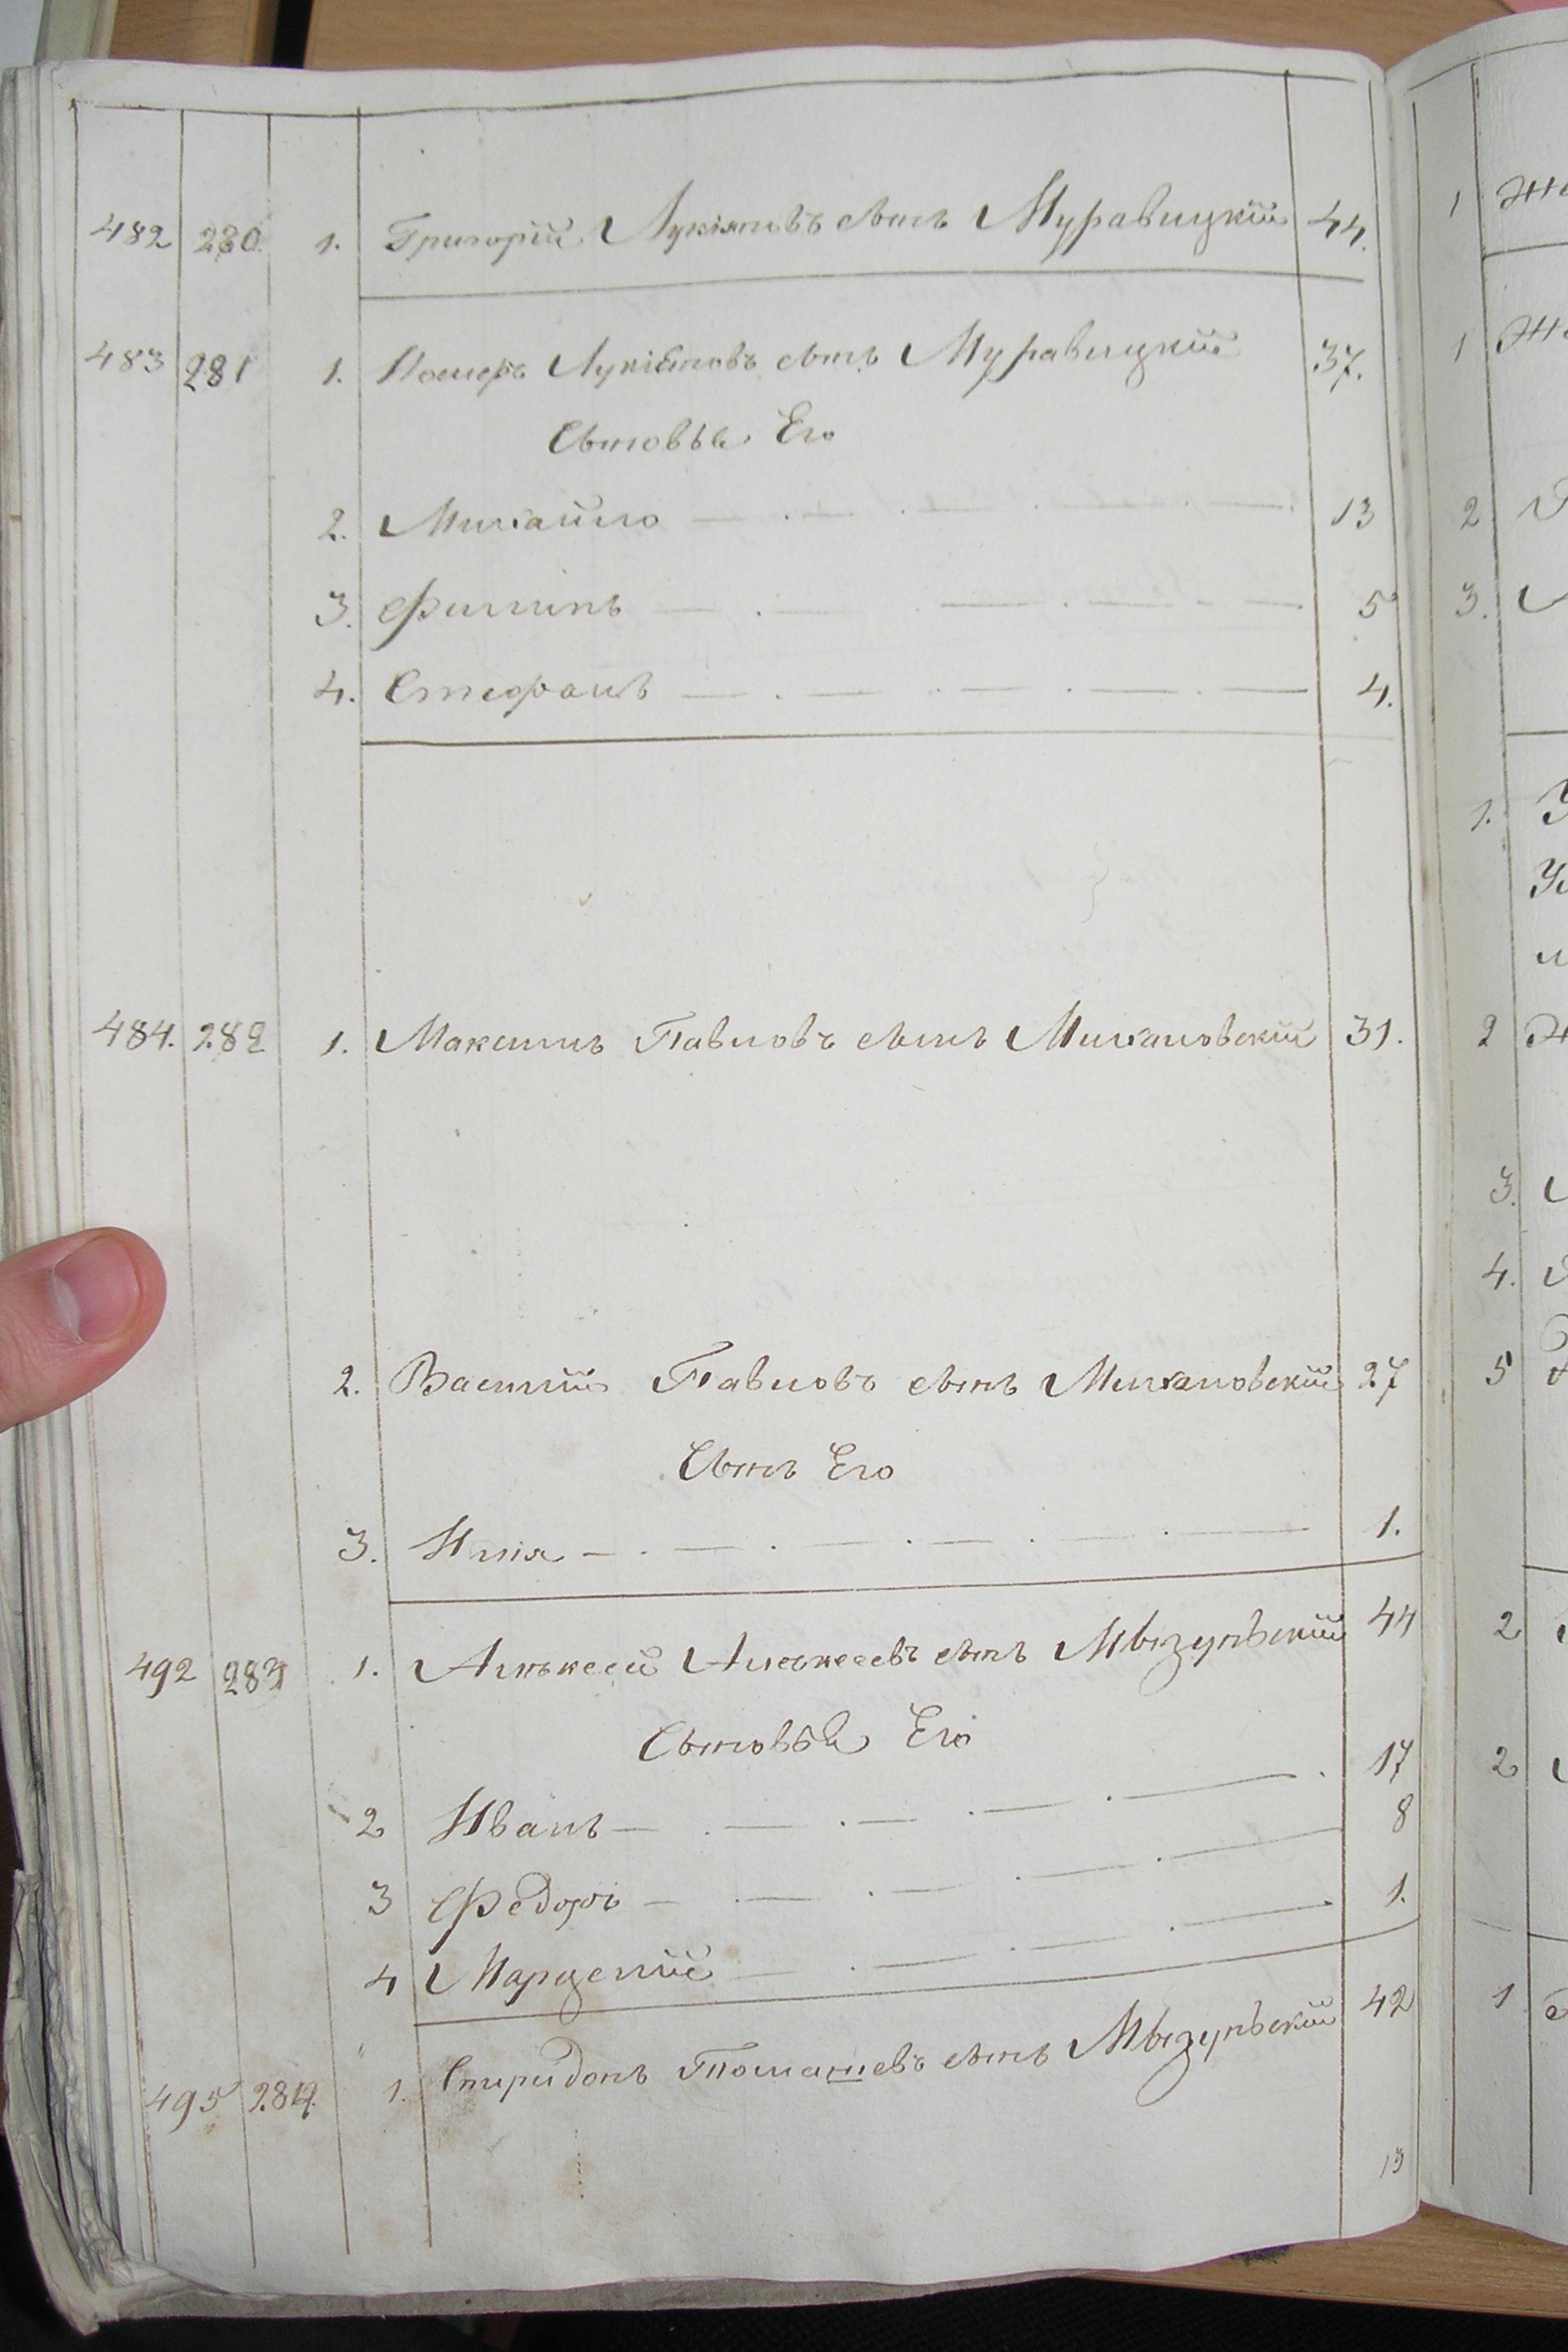 482 280 1. Григорій Лукіяновъ сынъ Муравицкій 44.
483 281 1. Лукіяновъ сынъ Муравицкій 37.
Сыновья Его
2. Михайло 13
3. Филипъ 5
4. Стефанъ 4.
484. 282 1. Максимъ Павловъ сынъ Михаловскій 31.
2. Василій Павловъ сынъ Михаловскій 27
Сынъ Его
3. Илія 1.
492 283 1. Алѣксей Алеѯеевъ сынъ Мызупьскій 44
Сыновья Его
2 Иванъ 17
3 Федоръ 8
4 Марцелій 1.
495 284. 1. Спиридонъ Томашевъ сынъ Мызупьскій 42
13
1
1
2
3.
1.
2
3.
4.
5
2
2
1